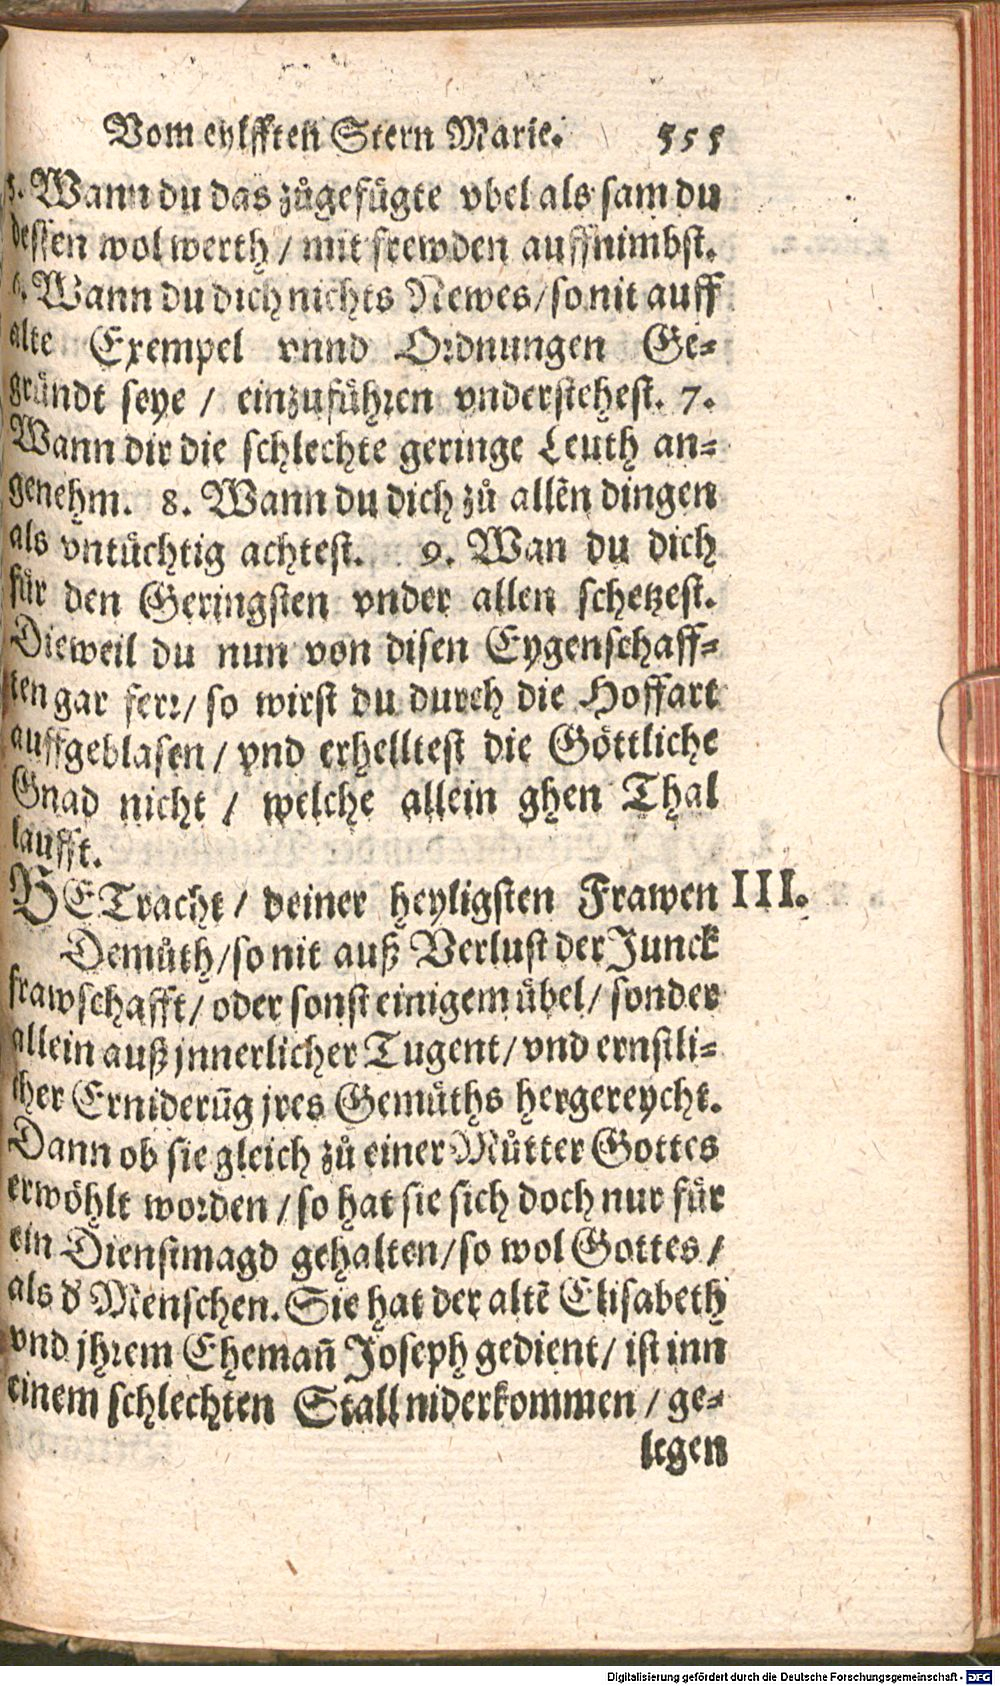 Vom eylfften Stern Marie. 555
5. Wann du das zůgefůgte vbel als sam du
dessen wol werth / mit frewden auffnimbst.
6. Wann du dich nichts Newes / so nit auff
alte Exempel vnnd Ordnungen Ge-
gründt seye / einzuführen vnderstehest. 7.
Wann dir die schlechte geringe Leuth an-
genehm. 8. Wann du dich zů allẽn dingen
als vntüchtig achtest. 9. Wan du dich
für den Geringsten vnder allen schetzest.
Dieweil du nun von disen Eygenschaff-
ten gar ferr / so wirst du durch die Hoffart
auffgeblasen / vnd erhelltest die Göttliche
Gnad nicht / welche allein ghen Thal
laufft.
BETracht / deiner heyligsten Frawen III.
Demůth / so nit auß Verlust der Junck
frawschafft / oder sonst einigem übel / sonder
allein auß jnnerlicher Tugent / vnd ernstli-
cher Erniderũg jres Gemůths hergereycht.
Dann ob sie gleich zů einer Můtter Gottes
erwöhlt worden / so hat sie sich doch nur für
ein Dienstmagd gehalten / so wol Gottes /
als d' Menschen. Sie hat der altẽ Elisabeth
vnd jhrem Ehemañ Joseph gedient / ist inn
einem schlechten Stall niderkommen / ge-
legen
Digitalisierung gefördert durch die Deutsche Forschungsgemeinschaft - DFG